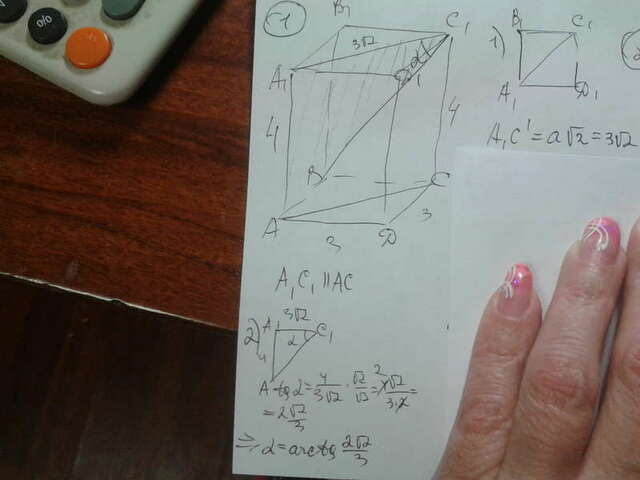 1
B₁
C₁
3√2
α
A₁
D₁
4
4
B
C
A
D
3
3
1)
B₁ C₁
A₁ D₁
A₁C' = a√2 = 3√2
A₁C₁ || AC
2)
3√2
A₁ C₁
α
4
A
tg α = 4/3√2 · √2/√2 = 4√2/3·2 =
2
= 2√2/3
=> α = arctg 2√2/3
0/0